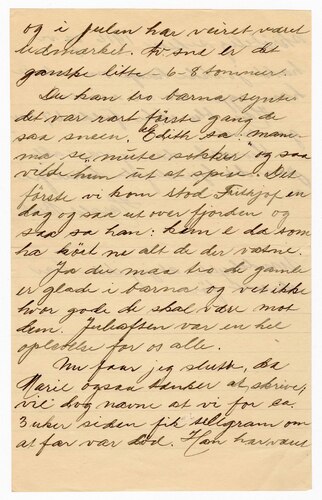 og i julen har veiret været
udmærket. Av sne er det
ganske litte 6-8 tommer.
Du kan tro bærna syntes
det var rart förste gang de
saa sneen. Edith sa "mam-
ma se, "mutte sokker" og saa
vilde hun ut at spise. Det
förste vi kom stod Fithjof en
dag og saa ut over fjorden og
saa sa han: hem e da som
ha köst ne alt de der vatne.
Ja du maa tro de gamle
er glade i bærna og vet ikke
hvor gode de skal være mot
dem. Juleaften var en hel
oplevelse for os alle.
Nu faar jeg slutte, da
Marie ogsaa tænker at skrive,
vil dog nævne at vi for ca.
3 uker siden fik tellgram om
at far var död. Han har været